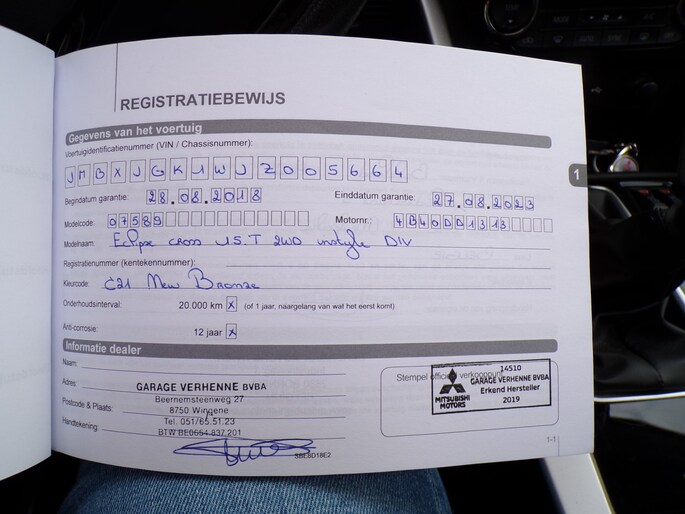 REGISTRATIEBEWIJS
Gegevens van het voertuig
Voertuigidentificatienummer (VIN / Chassisnummer):
JMBXJGK1WJZ005664
Begindatum garantie: 28.08.2018 Einddatum garantie: 27.08.2023
Modelcode: 07589 Motornr.: 4B40DD1313
Modelnaam: Eclipse cross 1.5.T 2WD instyle DIV
Registratienummer (kentekennummer):
Kleurcode: C21 New Bronze
Onderhoudsinterval: 20.000 km x (of 1 jaar, naargelang van wat het eerst komt)
Anti-corrosie: 12 jaar x
1
Informatie dealer
Naam:
Adres: GARAGE VERHENNE BVBA
Beernemsteenweg 27
Postcode & Plaats: 8750 Wingene
Tel. 051/65.51.23
Handtekening: BTW BE0654.837.201
Stempel officieel verkooppunt
14510
GARAGE VERHENNE BVBA
Erkend Hersteller
2019
MITSUBISHI
MOTORS
SBE8D1BE2
1-1